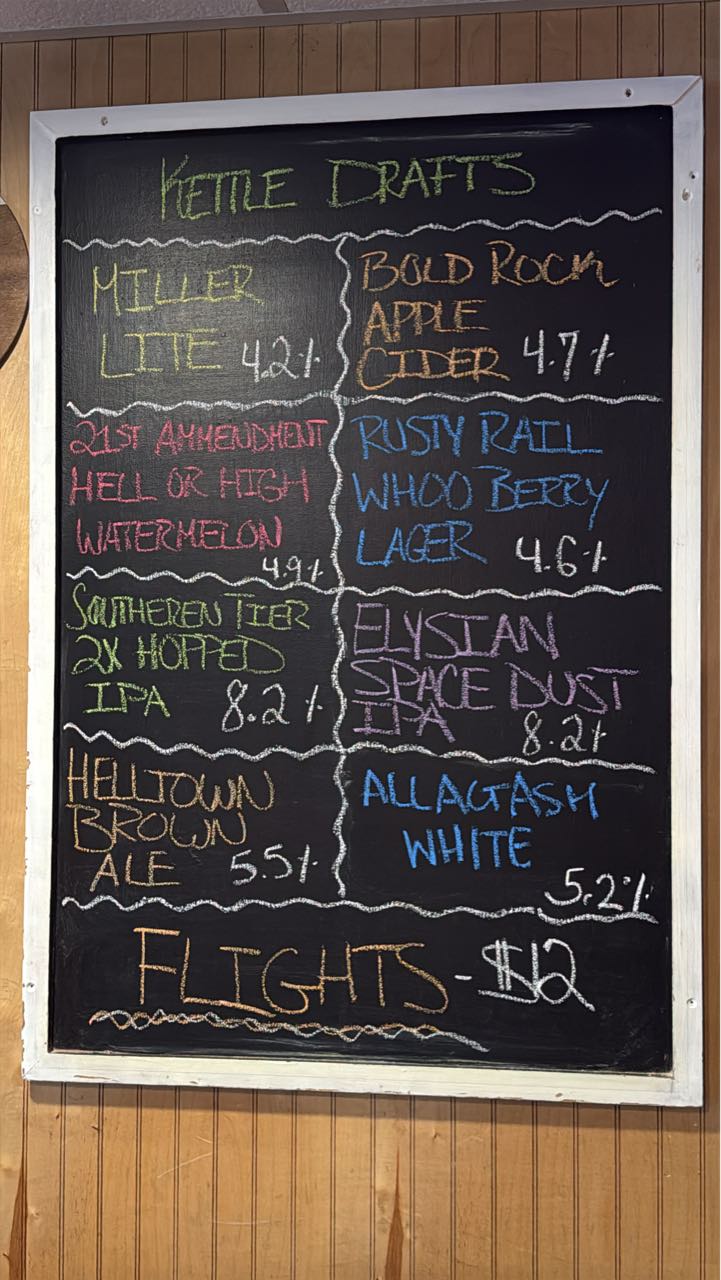 KETTLE DRAFTS
MILLER
LITE 4.2%
BOLD ROCK
APPLE
CIDER 4.7%
21ST AMMENDMENT
HELL OR HIGH
WATERMELON
4.9%
RUSTY RAIL
WHOO BERRY
LAGER 4.6%
SOUTHEREN TIER
2X HOPPED
IPA 8.2%
ELYSIAN
SPACE DUST
IPA 8.2%
HELLTOWN
BROWN
ALE 5.5%
ALLAGASH
WHITE
5.2%
FLIGHTS - $12